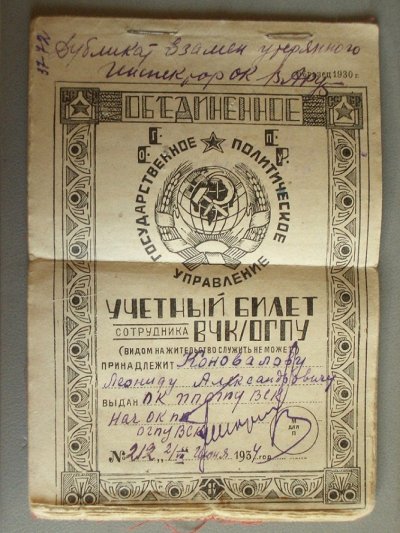 Дубликат взамен утерянного
Инспектор ОК
Образец 1930 г.
ОБЪЕДИНЕННОЕ
ГОСУДАРСТВЕННОЕ ПОЛИТИЧЕСКОЕ
УПРАВЛЕНИЕ
УЧЕТНЫЙ БИЛЕТ
СОТРУДНИКА ВЧК/ОГПУ
(ВИДОМ НА ЖИТЕЛЬСТВО СЛУЖИТЬ НЕ МОЖЕТ)
ПРИНАДЛЕЖИТ Коновалову
Леониду Александровичу
ВЫДАН ОК ПП ОГПУ ВСК
Нач ОК ПП
ОГПУ ВСК
ДЛЯ
№ 212 „2/ 1934 год